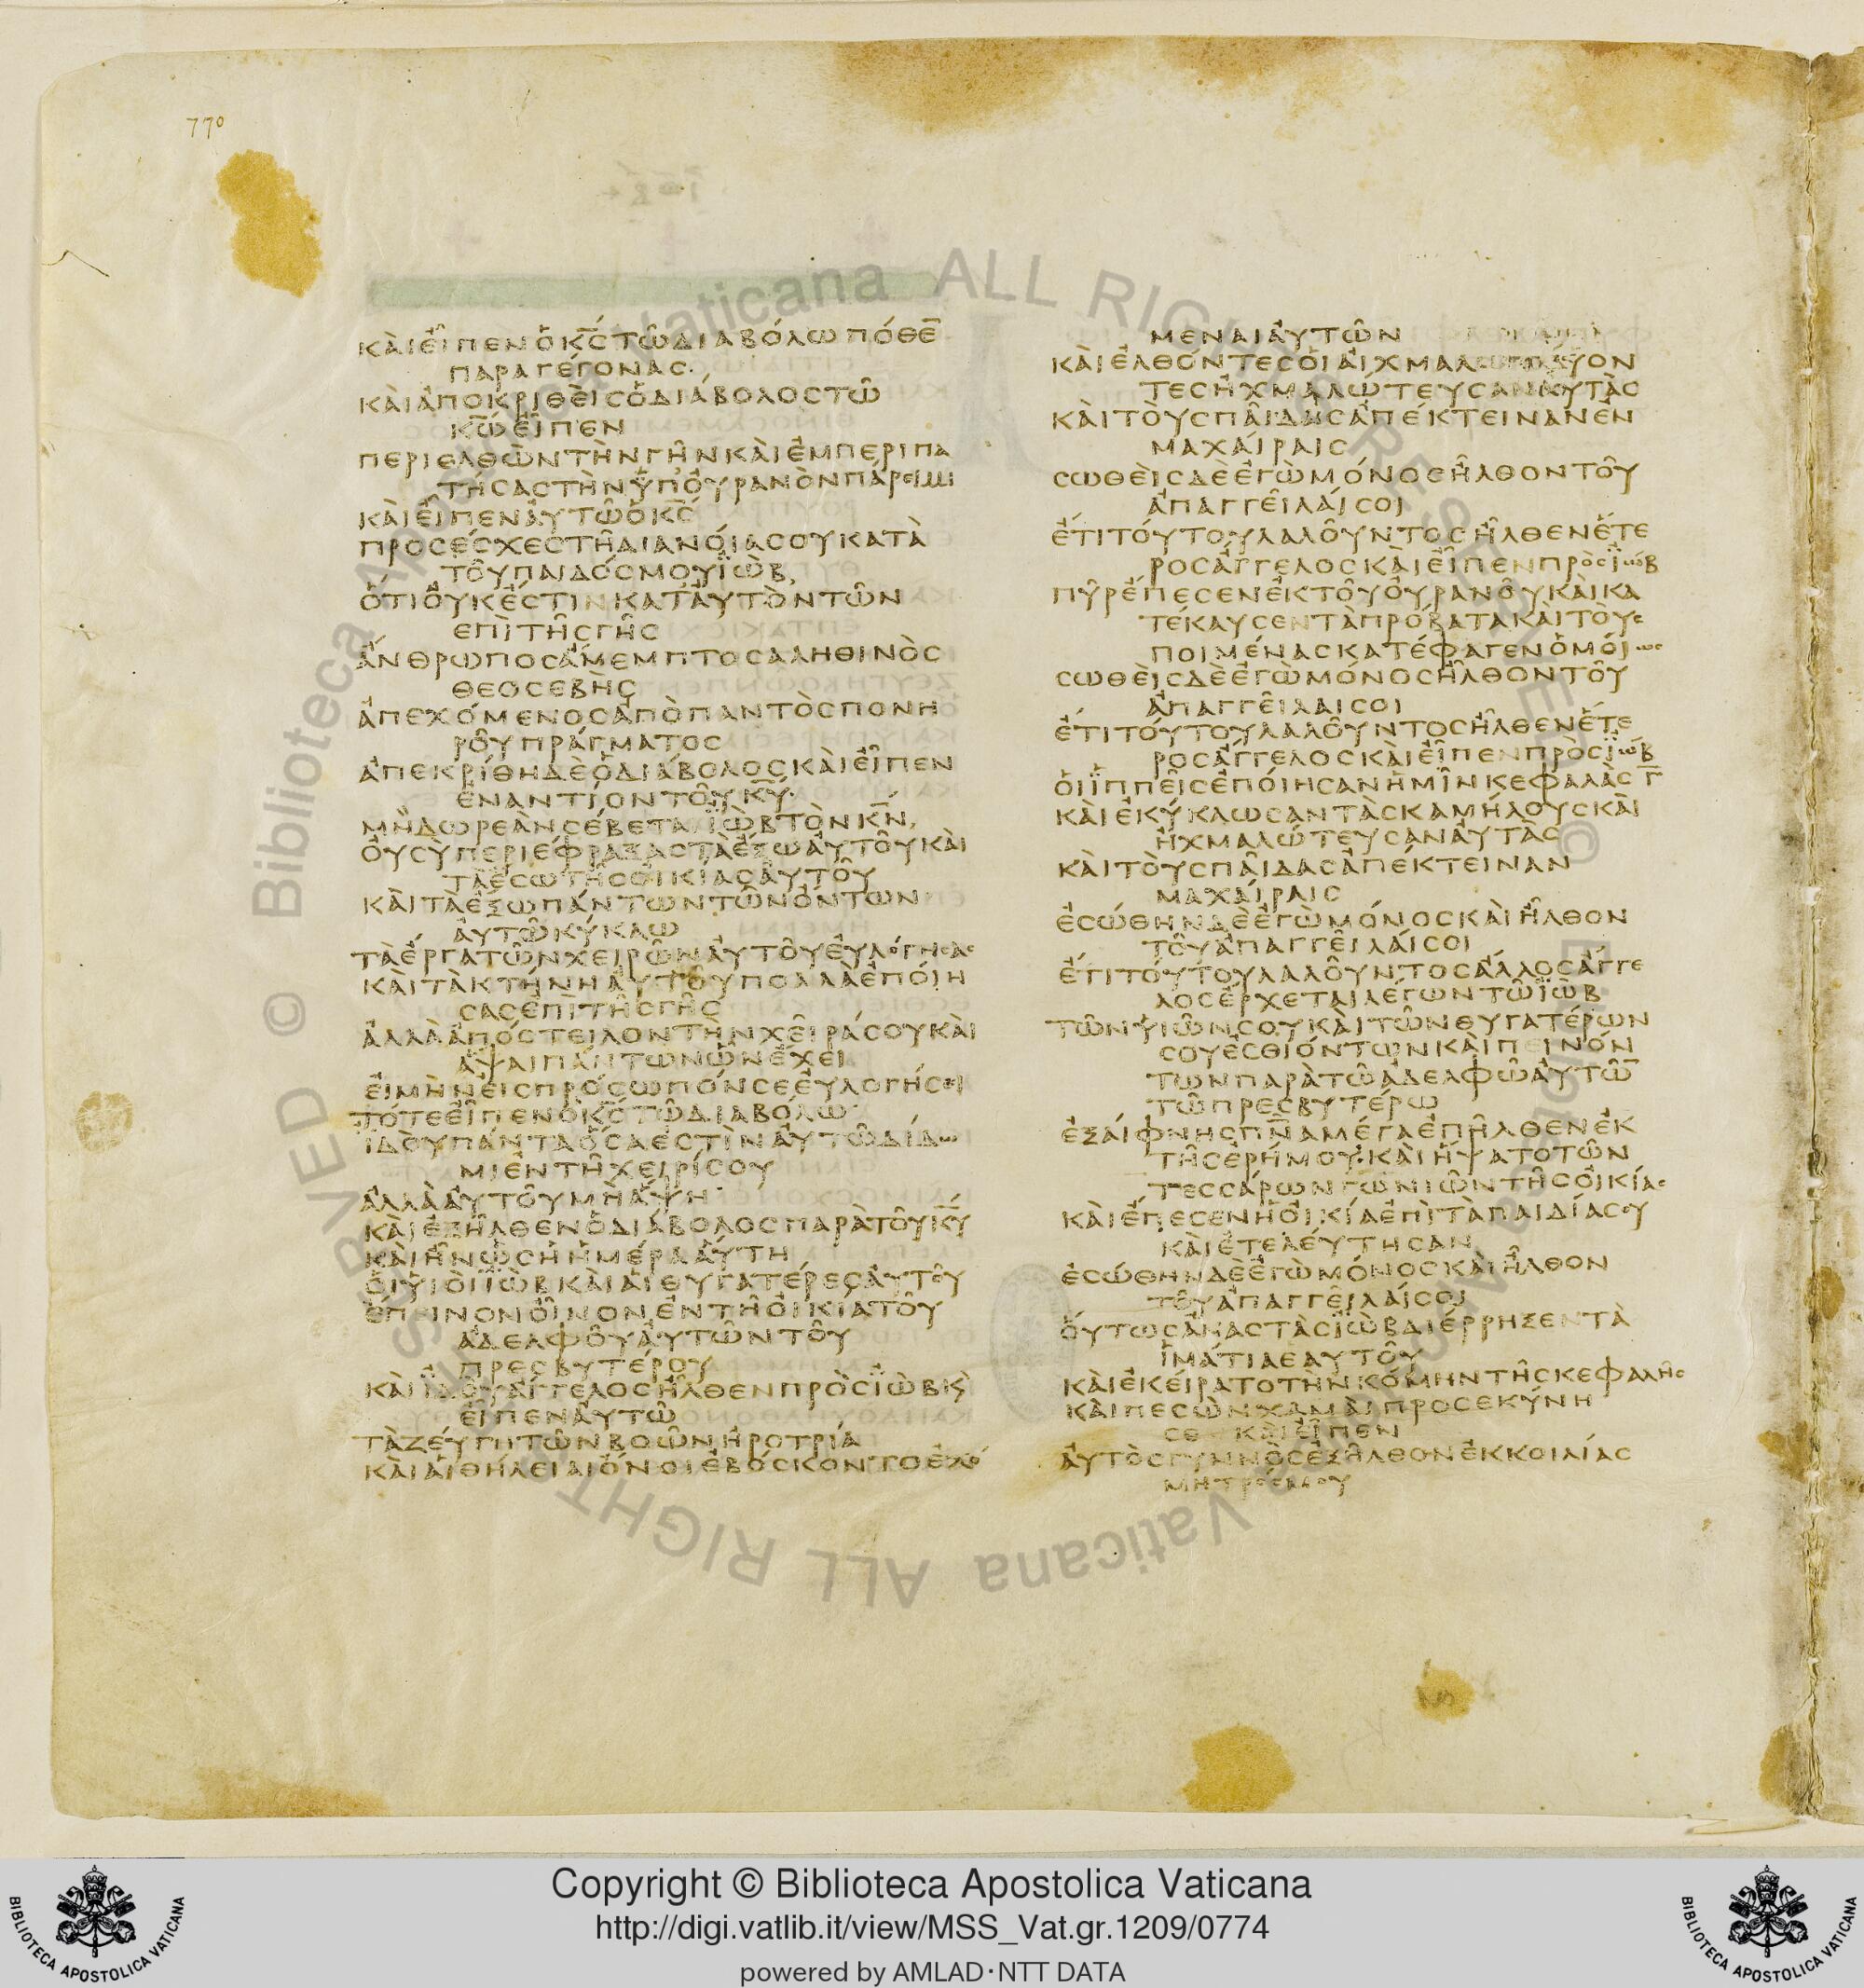 770
ΚΑΙΕΙΠΕΝΟΚ̅Σ̅ΤΩΔΙΑΒΟΛΩΠΟΘΕ̅
ΠΑΡΑΓΕΓΟΝΑΣ·
ΚΑΙΑΠΟΚΡΙΘΕΙΣΟΔΙΑΒΟΛΟΣΤΩ
Κ̅Ω̅ΕΙΠΕΝ
ΠΕΡΙΕΛΘΩΝΤΗΝΓΗΝΚΑΙΕΜΠΕΡΙΠΑ
ΤΗΣΑΣΤΗΝΥΠΟΥΡΑΝΟΝΠΑΡΕΙΜΙ
ΚΑΙΕΙΠΕΝΑΥΤΩΟΚ̅Σ̅
ΠΡΟΣΕΣΧΕΣΤΗΔΙΑΝΟΙΑΣΟΥΚΑΤΑ
ΤΟΥΠΑΙΔΟΣΜΟΥΪΩΒ,
ΟΤΙΟΥΚΕΣΤΙΝΚΑΤΑΥΤΟΝΤΩΝ
ΕΠΙΤΗΣΓΗΣ
ΑΝΘΡΩΠΟΣΑΜΕΜΠΤΟΣΑΛΗΘΙΝΟΣ
ΘΕΟΣΕΒΗΣ
ΑΠΕΧΟΜΕΝΟΣΑΠΟΠΑΝΤΟΣΠΟΝΗ
ΡΟΥΠΡΑΓΜΑΤΟΣ
ΑΠΕΚΡΙΘΗΔΕΟΔΙΑΒΟΛΟΣΚΑΙΕΙΠΕΝ
ΕΝΑΝΤΙΟΝΤΟΥΚ̅Υ̅·
ΜΗΔΩΡΕΑΝΣΕΒΕΤΑΙΪΩΒΤΟΝΚ̅Ν̅,
ΟΥΣΥΠΕΡΙΕΦΡΑΞΑΣΤΑΕΞΩΑΥΤΟΥΚΑΙ
ΤΑΕΣΩΤΗΣΟΙΚΙΑΣΑΥΤΟΥ
ΚΑΙΤΑΕΞΩΠΑΝΤΩΝΤΩΝΟΝΤΩΝ
ΑΥΤΩΚΥΚΛΩ
ΤΑΕΡΓΑΤΩΝΧΕΙΡΩΝΑΥΤΟΥΕΥΛΟΓΗΣΑΣ
ΚΑΙΤΑΚΤΗΝΗΑΥΤΟΥΠΟΛΛΑΕΠΟΙΗ
ΣΑΣΕΠΙΤΗΣΓΗΣ
ΑΛΛΑΑΠΟΣΤΕΙΛΟΝΤΗΝΧΕΙΡΑΣΟΥΚΑΙ
ΑΨΑΙΠΑΝΤΩΝΩΝΕΧΕΙ
ΕΙΜΗΝΕΙΣΠΡΟΣΩΠΟΝΣΕΕΥΛΟΓΗΣΕΙ
ΤΟΤΕΕΙΠΕΝΟΚ̅Σ̅ΤΩΔΙΑΒΟΛΩ
ΪΔΟΥΠΑΝΤΑΟΣΑΕΣΤΙΝΑΥΤΩΔΙΔΩ
ΜΙΕΝΤΗΧΕΙΡΙΣΟΥ
ΑΛΛΑΑΥΤΟΥΜΗΑΨΗ·
ΚΑΙΕΞΗΛΘΕΝΟΔΙΑΒΟΛΟΣΠΑΡΑΤΟΥΚ̅Υ̅
ΚΑΙΗΝΩΣΗΗΜΕΡΑΑΥΤΗ
ΟΙΥΙΟΙΪΩΒΚΑΙΑΙΘΥΓΑΤΕΡΕΣΑΥΤΟΥ
ΕΠΕΙΝΟΝΟΙΝΟΝΕΝΤΗΟΙΚΙΑΤΟΥ
ΑΔΕΛΦΟΥΑΥΤΩΝΤΟΥ
ΠΡΕΣΒΥΤΕΡΟΥ
ΚΑΙΪΔΟΥΑΓΓΕΛΟΣΗΛΘΕΝΠΡΟΣΪΩΒΚ
ΕΙΠΕΝΑΥΤΩ
ΤΑΖΕΥΓΗΤΩΝΒΟΩΝΗΡΟΤΡΙΑ
ΚΑΙΑΙΘΗΛΕΙΑΙΟΝΟΙΕΒΟΣΚΟΝΤΟΕΧΟ
ΜΕΝΑΙΑΥΤΩΝ
ΚΑΙΕΛΘΟΝΤΕΣΟΙΑΙΧΜΑΛΩΤΕΥΟΝ
ΤΕΣΗΧΜΑΛΩΤΕΥΣΑΝΑΥΤΑΣ
ΚΑΙΤΟΥΣΠΑΙΔΑΣΑΠΕΚΤΕΙΝΑΝΕΝ
ΜΑΧΑΙΡΑΙΣ
ΣΩΘΕΙΣΔΕΕΓΩΜΟΝΟΣΗΛΘΟΝΤΟΥ
ΑΠΑΓΓΕΙΛΑΙΣΟΙ
ΕΤΙΤΟΥΤΟΥΛΑΛΟΥΝΤΟΣΗΛΘΕΝΕΤΕ
ΡΟΣΑΓΓΕΛΟΣΚΑΙΕΙΠΕΝΠΡΟΣΪΩΒ
ΠΥΡΕΠΕΣΕΝΕΚΤΟΥΟΥΡΑΝΟΥΚΑΙΚΑ
ΤΕΚΑΥΣΕΝΤΑΠΡΟΒΑΤΑΚΑΙΤΟΥΣ
ΠΟΙΜΕΝΑΣΚΑΤΕΦΑΓΕΝΟΜΟΙΩΣ
ΣΩΘΕΙΣΔΕΕΓΩΜΟΝΟΣΗΛΘΟΝΤΟΥ
ΑΠΑΓΓΕΙΛΑΙΣΟΙ
ΕΤΙΤΟΥΤΟΥΛΑΛΟΥΝΤΟΣΗΛΘΕΝΕΤΕ
ΡΟΣΑΓΓΕΛΟΣΚΑΙΕΙΠΕΝΠΡΟΣΪΩΒ
ΟΙΪΠΠΕΙΣΕΠΟΙΗΣΑΝΗΜΙΝΚΕΦΑΛΑΣΓ̅
ΚΑΙΕΚΥΚΛΩΣΑΝΤΑΣΚΑΜΗΛΟΥΣΚΑΙ
ΗΧΜΑΛΩΤΕΥΣΑΝΑΥΤΑΣ
ΚΑΙΤΟΥΣΠΑΙΔΑΣΑΠΕΚΤΕΙΝΑΝ
ΜΑΧΑΙΡΑΙΣ
ΕΣΩΘΗΝΔΕΕΓΩΜΟΝΟΣΚΑΙΗΛΘΟΝ
ΤΟΥΑΠΑΓΓΕΙΛΑΙΣΟΙ
ΕΤΙΤΟΥΤΟΥΛΑΛΟΥΝΤΟΣΑΛΛΟΣΑΓΓΕ
ΛΟΣΕΡΧΕΤΑΙΛΕΓΩΝΤΩΪΩΒ
ΤΩΝΥΙΩΝΣΟΥΚΑΙΤΩΝΘΥΓΑΤΕΡΩΝ
ΣΟΥΕΣΘΙΟΝΤΩΝΚΑΙΠΕΙΝΟΝ
ΤΩΝΠΑΡΑΤΩΑΔΕΛΦΩΑΥΤΩ̅
ΤΩΠΡΕΣΒΥΤΕΡΩ
ΕΞΑΙΦΝΗΣΠ̅Ν̅ΑΜΕΓΑΕΠΗΛΘΕΝΕΚ
ΤΗΣΕΡΗΜΟΥ·ΚΑΙΗΨΑΤΟΤΩΝ
ΤΕΣΣΑΡΩΝΓΩΝΙΩΝΤΗΣΟΙΚΙΑΣ
ΚΑΙΕΠΕΣΕΝΗΟΙΚΙΑΕΠΙΤΑΠΑΙΔΙΑΣΟΥ
ΚΑΙΕΤΕΛΕΥΤΗΣΑΝ
ΕΣΩΘΗΝΔΕΕΓΩΜΟΝΟΣΚΑΙΗΛΘΟΝ
ΤΟΥΑΠΑΓΓΕΙΛΑΙΣΟΙ
ΟΥΤΩΣΑΝΑΣΤΑΣΪΩΒΔΙΕΡΡΗΞΕΝΤΑ
ΪΜΑΤΙΑΕΑΥΤΟΥ
ΚΑΙΕΚΕΙΡΑΤΟΤΗΝΚΟΜΗΝΤΗΣΚΕΦΑΛΗΣ
ΚΑΙΠΕΣΩΝΧΑΜΑΙΠΡΟΣΕΚΥΝΗ
ΣΕ ΚΑΙΕΙΠΕΝ
ΑΥΤΟΣΓΥΜΝΟΣΕΞΗΛΘΟΝΕΚΚΟΙΛΙΑΣ
ΜΗΤΡΟΣΜΟΥ
© Biblioteca Apostolica Vaticana ALL RIGHTS RESERVED
Copyright © Biblioteca Apostolica Vaticana
http://digi.vatlib.it/view/MSS_Vat.gr.1209/0774
powered by AMLAD·NTT DATA
BIBLIOTECA APOSTOLICA VATICANA
BIBLIOTECA APOSTOLICA VATICANA